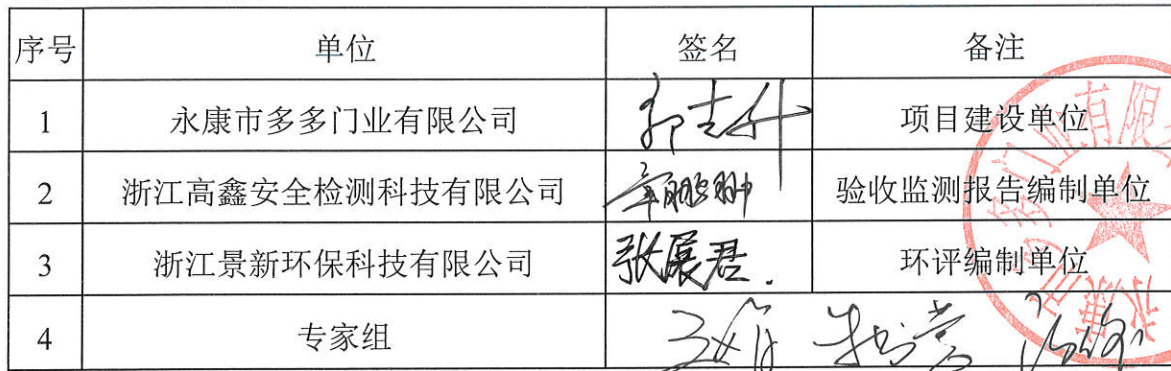 序号 单位 签名 备注
1 永康市多多门业有限公司 项目建设单位
2 浙江高鑫安全检测科技有限公司 验收监测报告编制单位
3 浙江景新环保科技有限公司 张展君. 环评编制单位
4 专家组
永康市多多门业有限